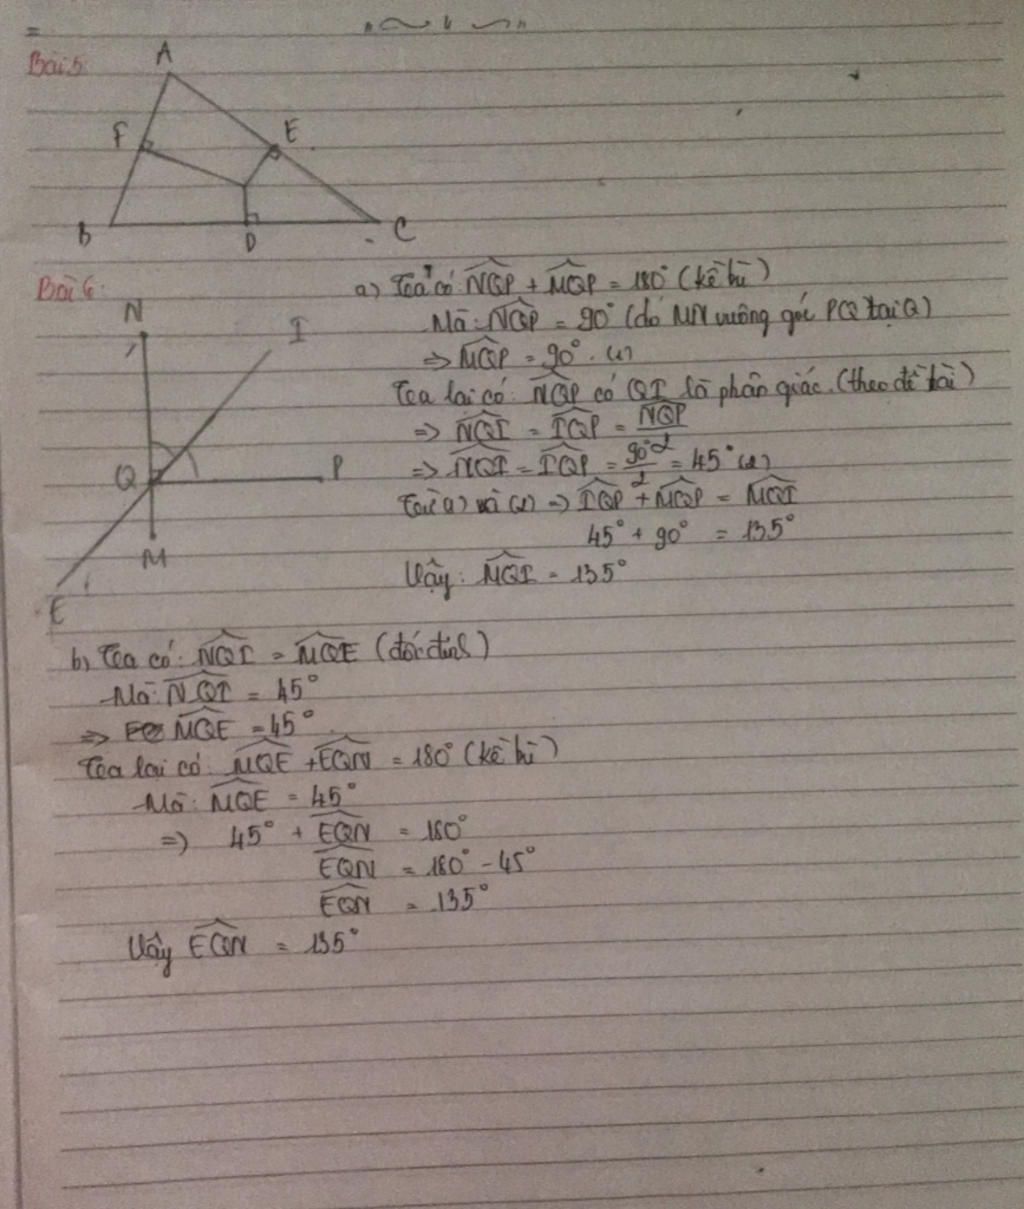 Bài 5
A
F
E
B
D
C
Bài 6:
N
I
Q
P
M
E
a) Ta có: NQP + MQP = 180° (kề bù)
Mà: NQP = 90° (do MN vuông góc PQ tại Q)
=> MQP = 90°. (1)
Ta lại có: NQP có QI là phân giác. (theo đề bài)
=> NQI = IQP = NQP/2
=> NQI = IQP = 90°/2 = 45° (2)
Từ (1) và (2) => IQP + MQP = MQI
45° + 90° = 135°
Vậy: MQI = 135°
b) Ta có: NQI = MQE (đối đỉnh)
Mà: NQI = 45°
=> MQE = 45°
Ta lại có: MQE + EQN = 180° (kề bù)
Mà: MQE = 45°
=> 45° + EQN = 180°
EQN = 180° - 45°
EQN = 135°
Vậy EQN = 135°